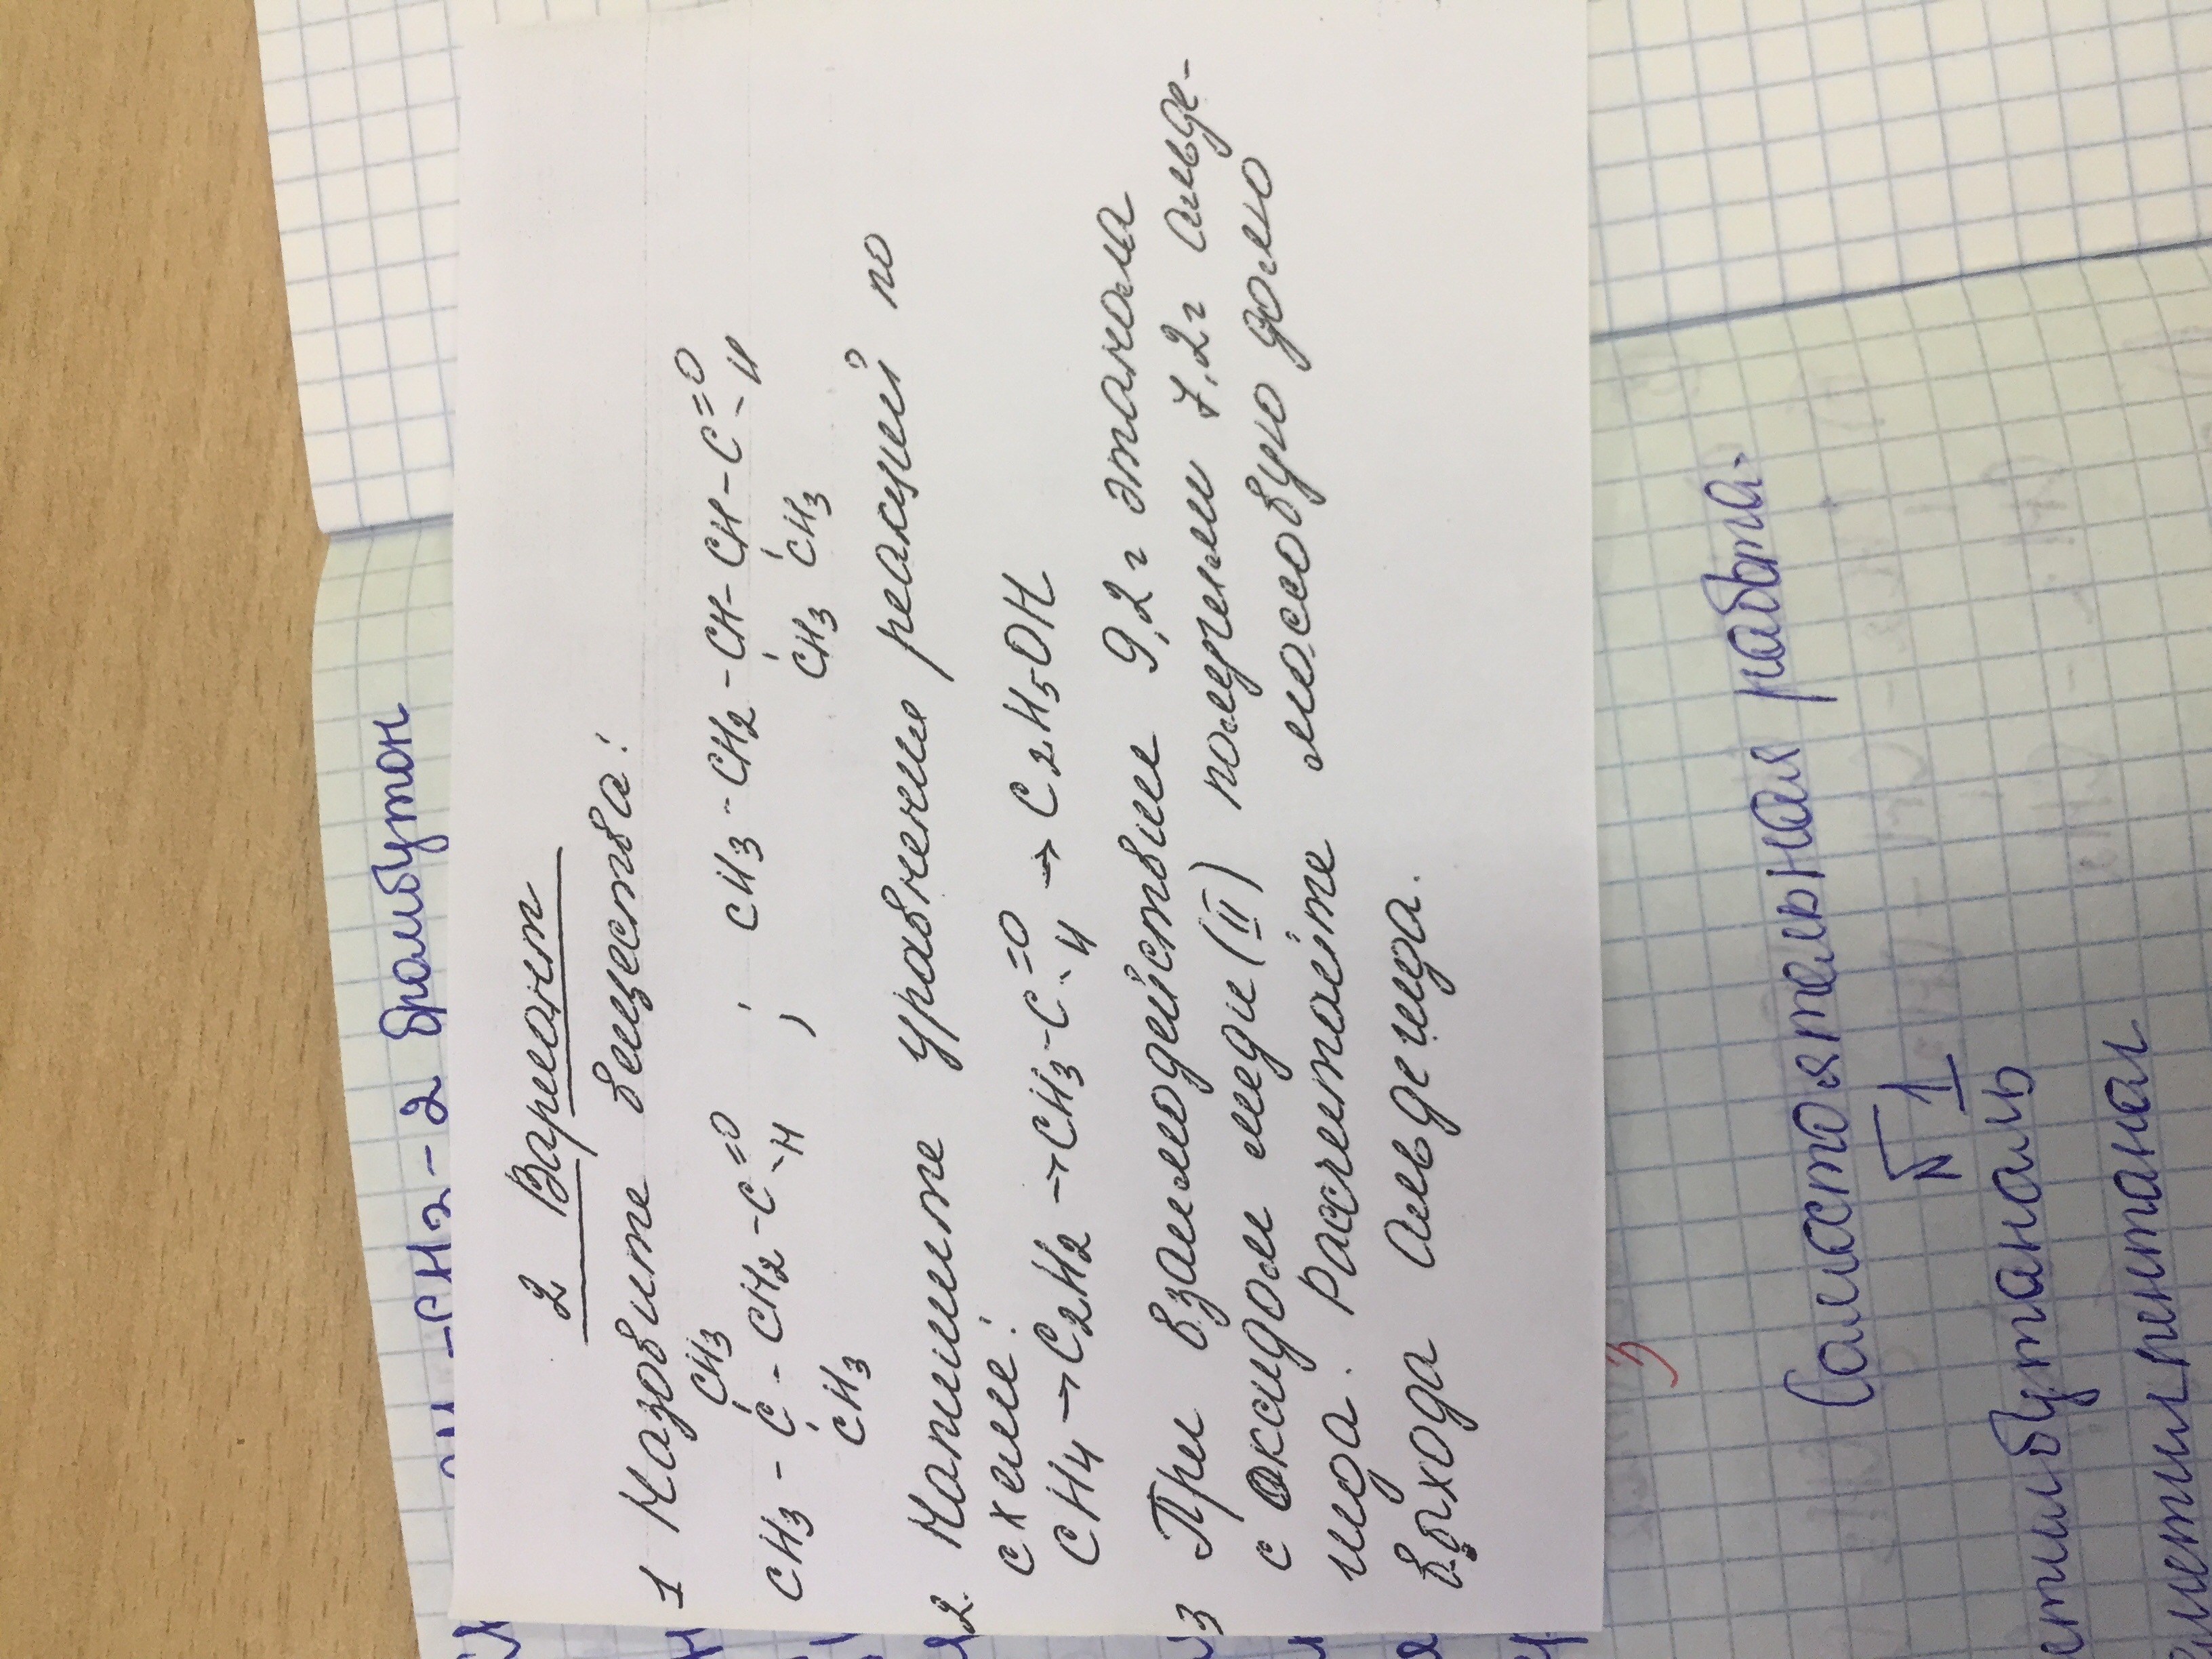 -CH2-2 бромбутон
2 Вариант
1 Назовите вещества:
CH3
CH3-C-CH2-C=O ; CH3-CH2-CH-CH-C=O
CH3 H CH3 CH3 H
2. Напишите уравнение реакций по
схеме:
CH4→C2H2→CH3-C=O→C2H5OH
H
3 При взаимодействие 9,2г этанола
с оксидом меди (II) получили 7,2г альде-
гида. Рассчитайте массовую долю
выхода альдегида.
3
Самостоятельная работа.
№1
бутаналь
пентанал